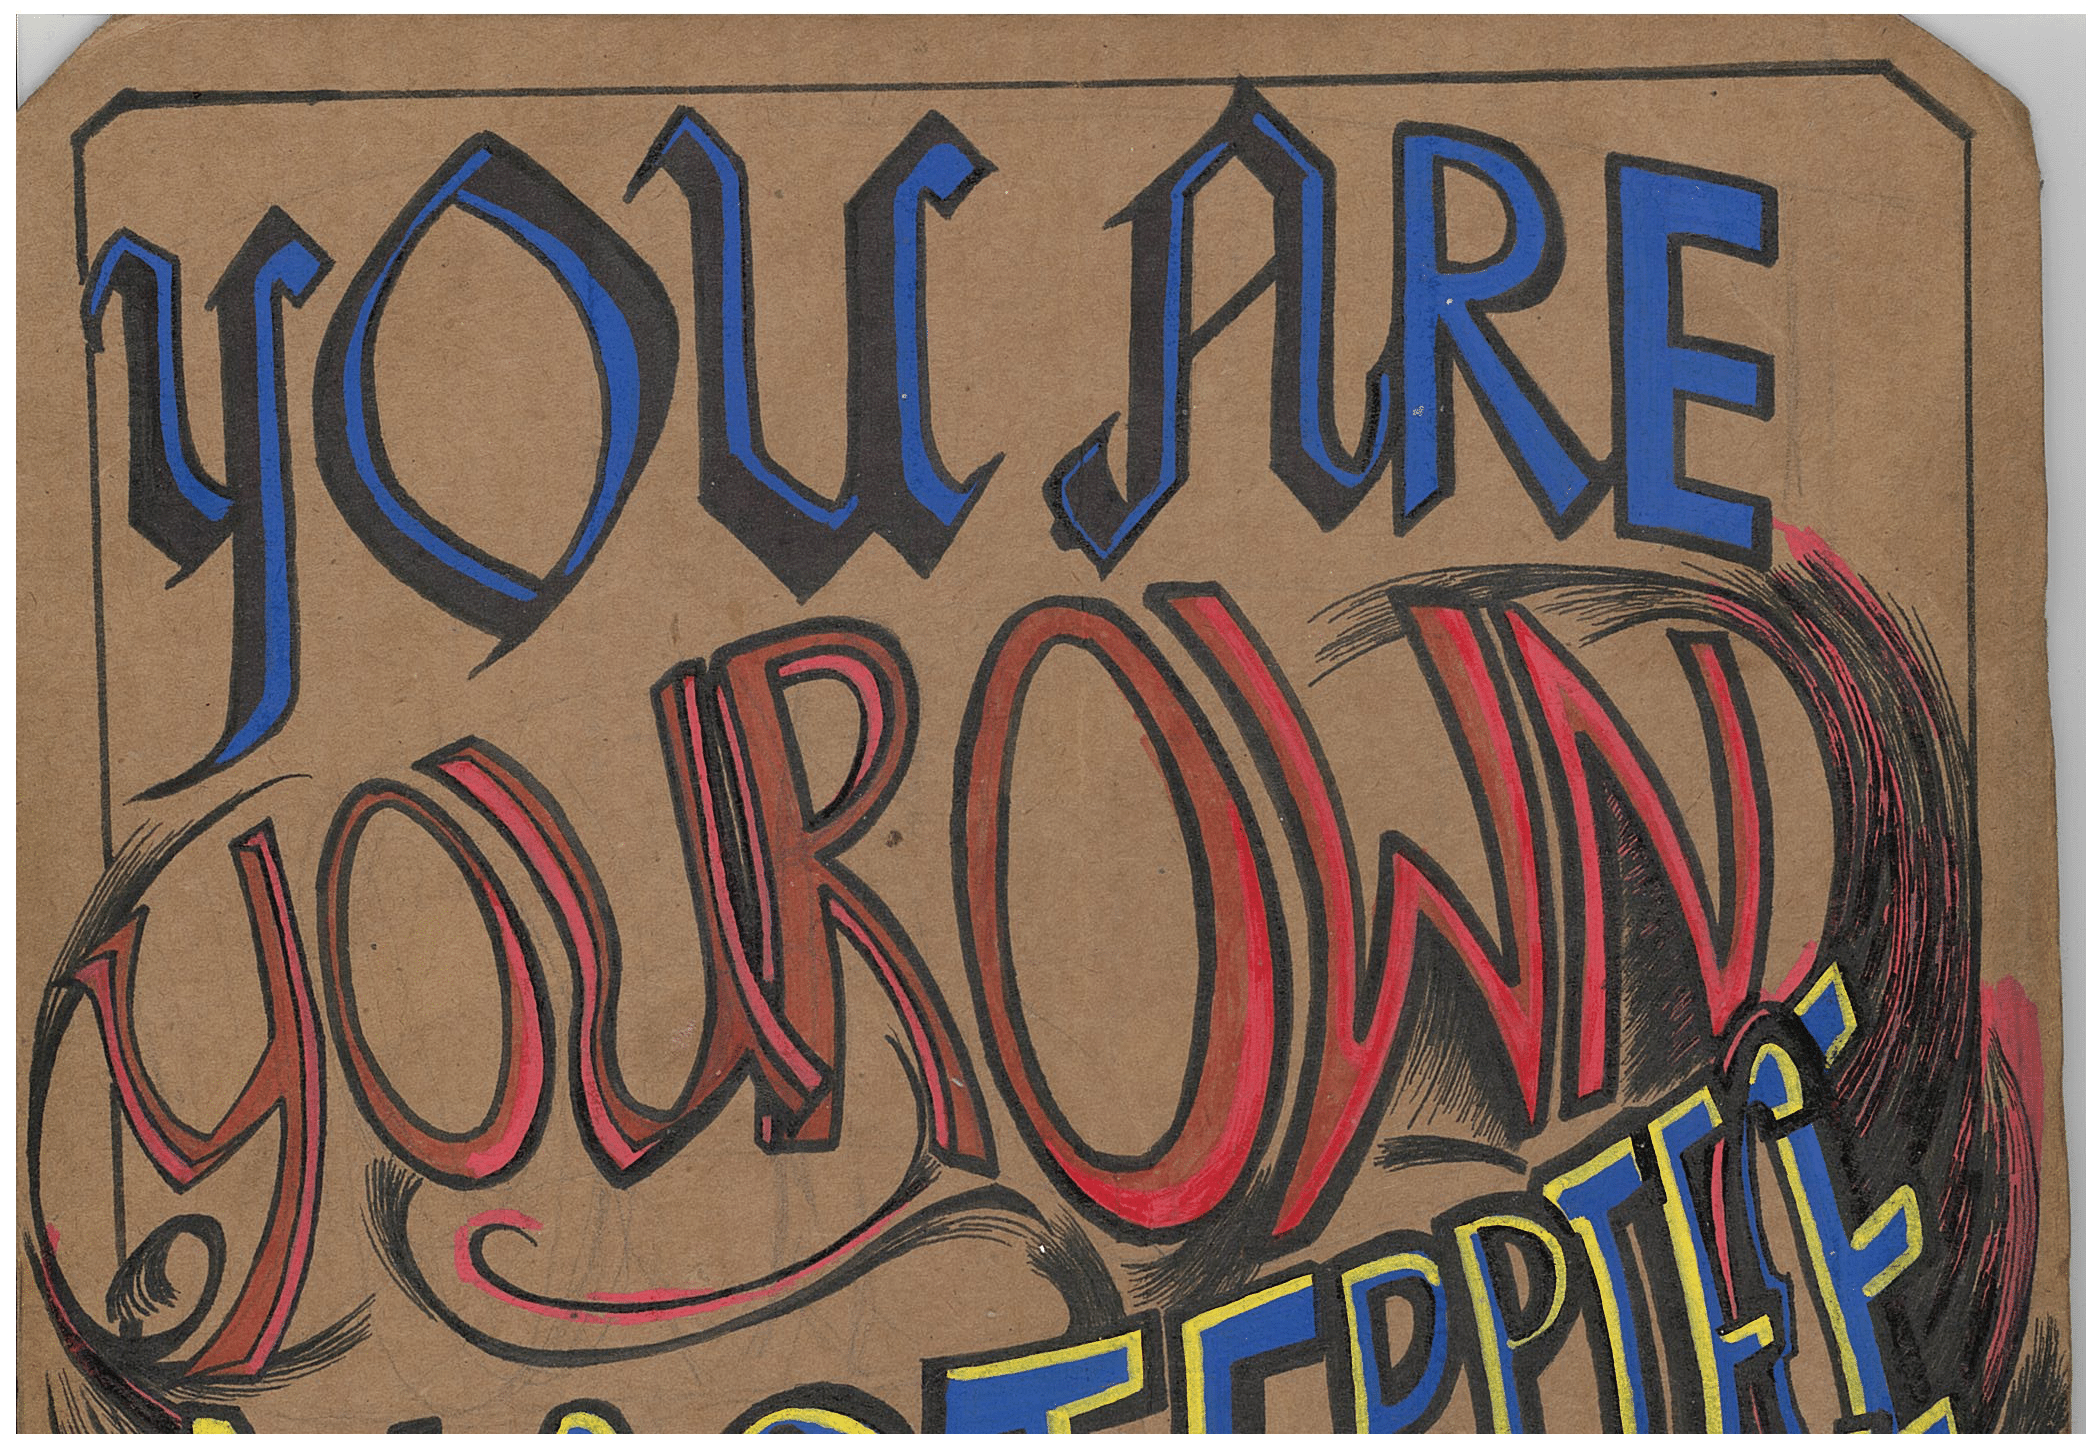 YOU ARE
YOUR OWN
MASTERPIECE